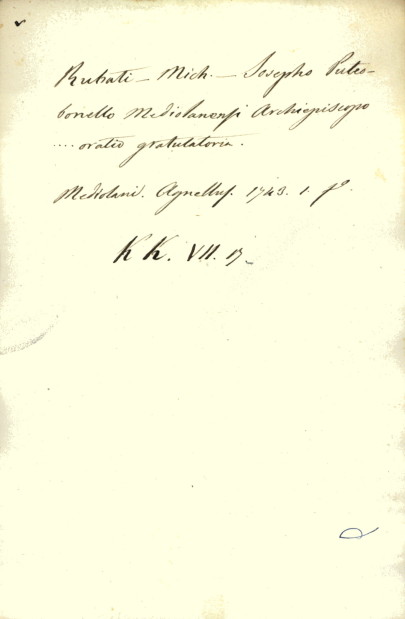 Rubati - Mich. - Josepho Puteo-
bonello Mediolanensi Archiepiscopo
.... oratio gratulatoria.
Mediolani. Agnellus. 1743. 1. f°.
KK. VII. 17